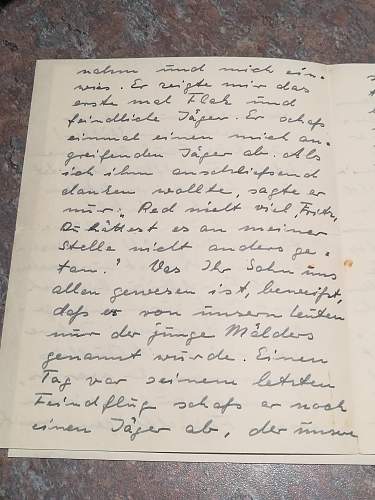 nahm und mich ein-
wies. Er zeigte mir das
erste mal Flak und
feindliche Jäger. Er schoß
einmal einen mich an-
greifenden Jäger ab. Als
ich ihm anschließend
danken wollte, sagte er
nur: "Red nicht viel, Fritz,
Du hättest es an meiner
Stelle nicht anders ge-
tan." Was Ihr Sohn uns
allen gewesen ist, beweißt,
daß er von unsern Leuten
nur der junge Mölders
genannt wurde. Einen
Tag vor seinem letzten
Feindflug schoß er noch
einen Jäger ab, der unsre